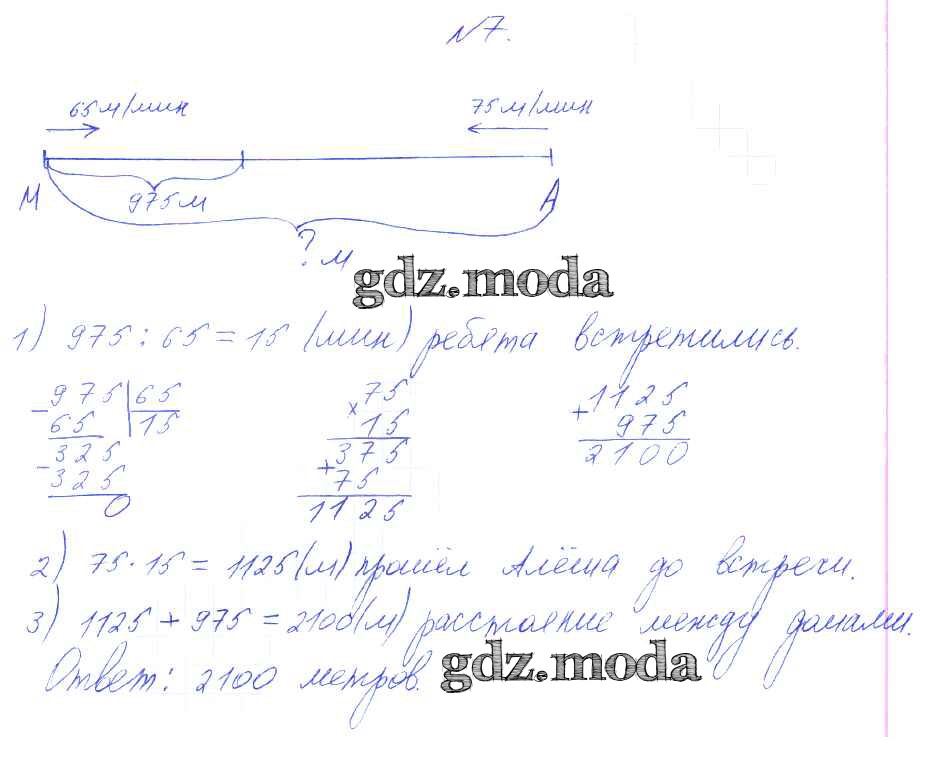 №7.
65 м/мин 75 м/мин
М 975 м А
? м
gdz.moda
1) 975 : 65 = 15 (мин) ребята встретились.
975 65 75 1125
- 65 15 × 15 + 975
325 375 2100
- 325 + 75
0 1125
2) 75 · 15 = 1125 (м) прошёл Алёша до встречи.
3) 1125 + 975 = 2100 (м) расстояние между домами.
Ответ: 2100 метров.
gdz.moda